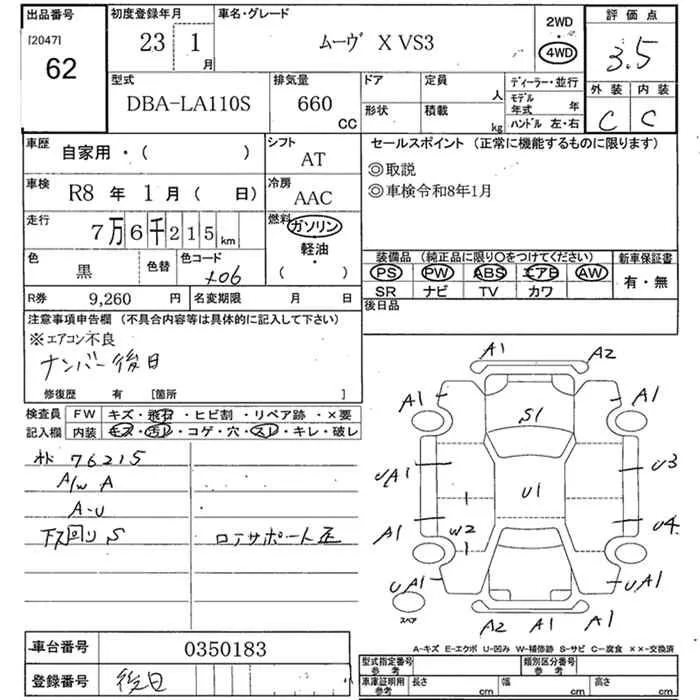 出品番号
[2047]
62
初度登録年月
23 1
月
車名・グレード
ムーヴ X VS3
2WD
4WD
評価点
3.5
外装 内装
C C
型式
DBA-LA110S
排気量
660
CC
ドア 定員
人
形状 積載
kg
ディーラー・並行
モデル
年式 年
ハンドル 左・右
車歴
自家用・( )
シフト
AT
車検
R8 年 1 月 ( 日)
冷房
AAC
走行
7万6千215km
燃料
ガソリン
軽油・
( )
色
黒
色替
色コード
X06
R券 9,260 円
名変期限 月 日
セールスポイント (正常に機能するものに限ります)
◎取説
◎車検令和8年1月
装備品 (純正品に限り〇をつけてください)
PS PW ABS エアB AW
SR ナビ TV カワ
新車保証書
有・無
後日品
注意事項申告欄 (不具合内容等は具体的に記入して下さい)
※エアコン不良
ナンバー後日
修復歴 有 [箇所 ]
検査員
記入欄
FW キズ・飛石・ヒビ割・リペア跡・×要
内装 キズ・汚レ・コゲ・穴・スレ・キレ・破レ
76215
A/W A
A-U
下回り S
ロアサポート歪
A1 A2
A1 A1
S1
UA1 U3
U1
A1 W2 U4
UA1 UA1
スペア
A2 A1 A1
A-キズ E-エクボ U-凹み W-補修跡 S-サビ C-腐食 ××-交換済
車台番号 0350183
登録番号 後日
型式指定番号
参考
類別区分番号
参考
車庫証明用
参考
長さ cm
幅 cm
高さ cm